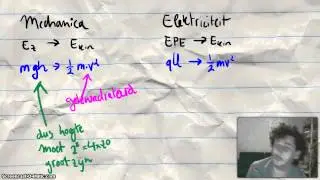 Mechanica
E_z → E_kin
mgh → ½ m·v²
gekwadrateerd
dus hoogte
moet 2² = 4x zo
groot zijn
Elektriciteit
EPE → E_kin
qU → ½mv²
Screencast-O-Matic.com